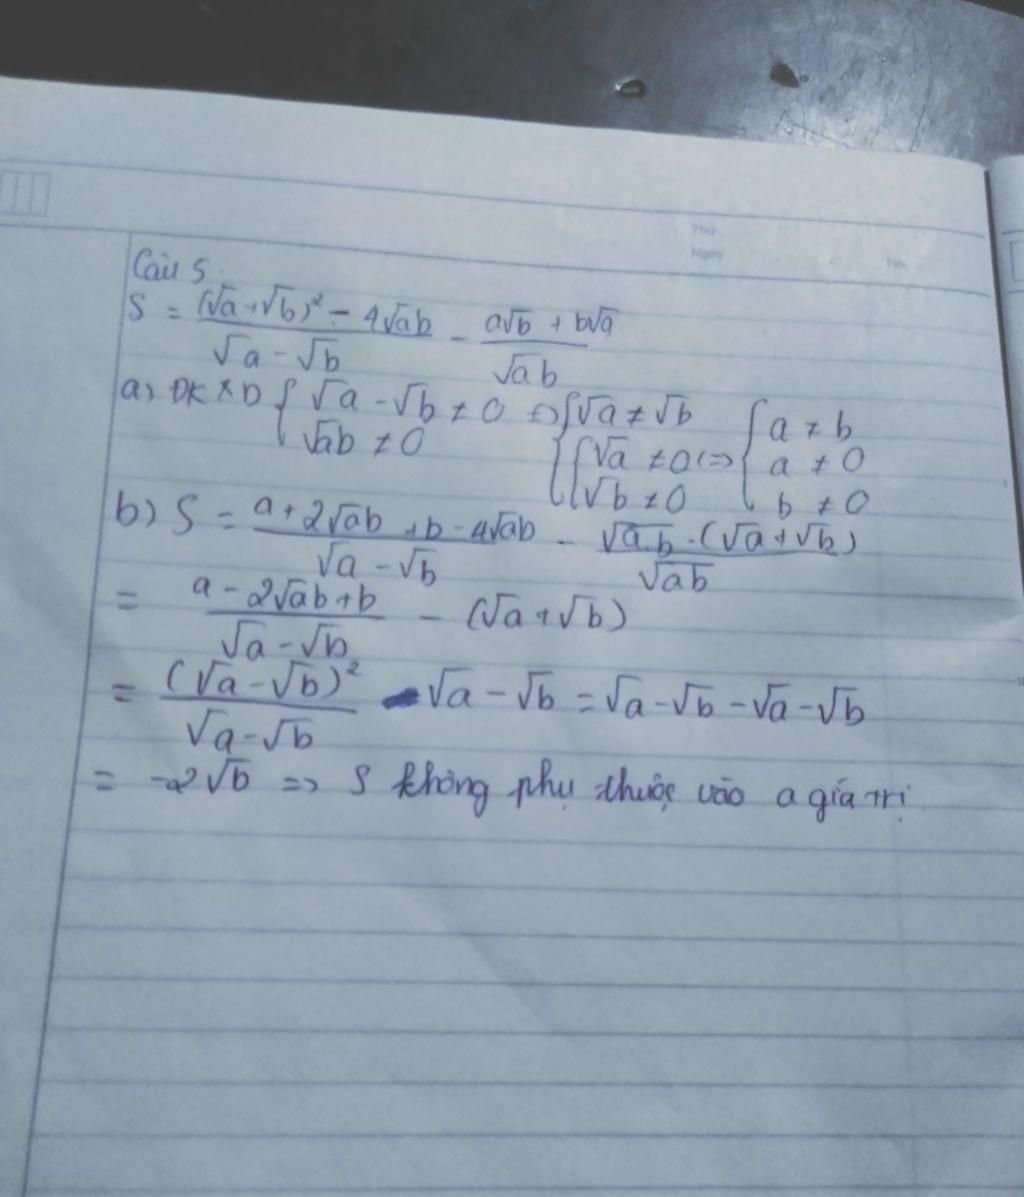 Thứ
Ngày No.
Câu 5.
S = \frac{(√a+√b)² - 4√ab}{√a - √b} - \frac{a√b + b√a}{√ab}
a) ĐKXD { √a - √b ≠ 0 ; √ab ≠ 0 <=> { √a ≠ √b ; { √a ≠ 0 ; √b ≠ 0 <=> { a ≠ b ; a ≠ 0 ; b ≠ 0
b) S = \frac{a + 2√ab + b - 4√ab}{√a - √b} - \frac{√a.b . (√a+√b)}{√ab}
= \frac{a - 2√ab + b}{√a - √b} - (√a + √b)
= \frac{(√a - √b)²}{√a - √b} - √a - √b = √a - √b - √a - √b
= -2√b => S không phụ thuộc vào a giá trị